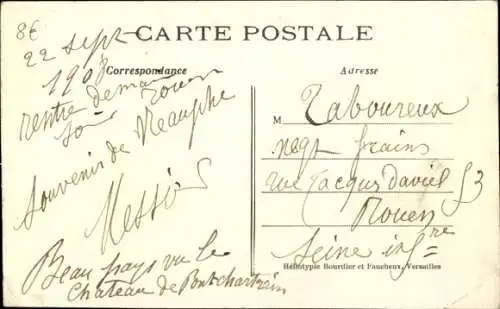 8€
CARTE POSTALE
Correspondance
Adresse
22 sept
1908
rentre demain
Rouen
Souvenir de Neauphe
Beau pays vu le
Château de Pontchartrain
M Taboureux
negt grains
rue Jacques Daviel 53
Rouen
Seine infre
Héliotypie Bourdier et Faucheux, Versailles